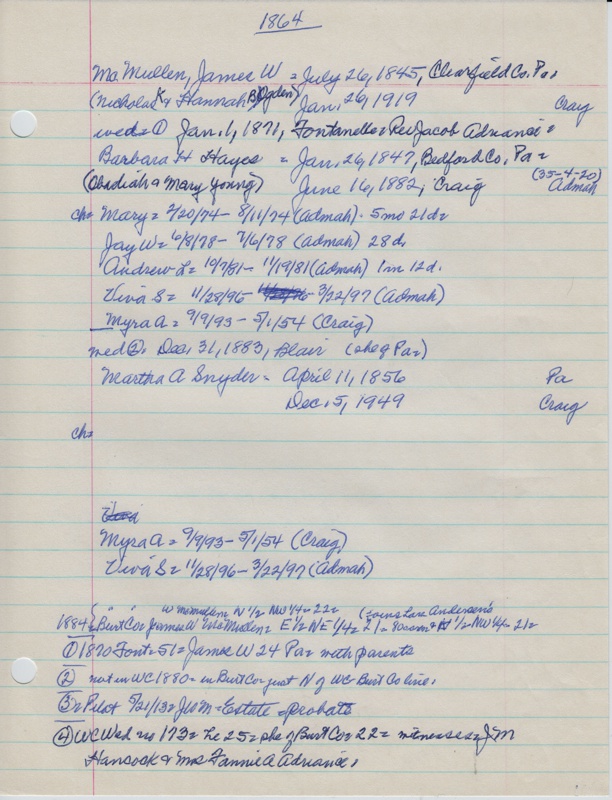 1864
McMullen, James W = July 26, 1845, Clearfield Co. Pa=
(Nicholas K & Hannah B Ogden) Jan. 26, 1919 Craig
wed = ① Jan. 1, 1871, Fontanelle = Rev Jacob Adriance =
Barbara H Hayes = Jan. 26, 1847, Bedford Co. Pa = (35-4-20)
(Obadiah & Mary Young) June 16, 1882, Craig Admah
ch= Mary = 2/20/74 - 8/11/74 (Admah) = 5mo 21d=
Jay W = 6/8/78 - 7/6/78 (Admah) 28 d.
Andrew L = 10/7/81 - 11/19/81 (Admah) 1m 12d.
Viva S = 11/28/96 - 3/22/97 (Admah)
Myra A = 9/9/93 - 5/1/54 (Craig)
wed ②= Dec. 31, 1883, Blair (she of Pa=)
Martha A Snyder = April 11, 1856 Pa
Dec. 5, 1949 Craig
ch=
Myra A = 9/9/93 - 5/1/54 (Craig)
Viva S = 11/28/96 - 3/22/97 (Admah)
" " W McMullen N 1/2 NW 1/4 = 22= (joins Lars Andersen's
1884 = Burt Co = James W McMullen = E 1/2 NE 1/4 = 21 = 80 N 1/2 NW 1/4 = 21=
① 1870 Font = 51 = James W 24 Pa = with parents
② not in WC 1880 = in Burt Co just N of WC-Burt Co line.
③ = Pilot 5/21/13 = JWM = Estate = probate
④ WC Wed no 173 = he 25 = she of Burt Co = 22 = witnesses = J M
Hancock & Mrs Fannie A Adriance.